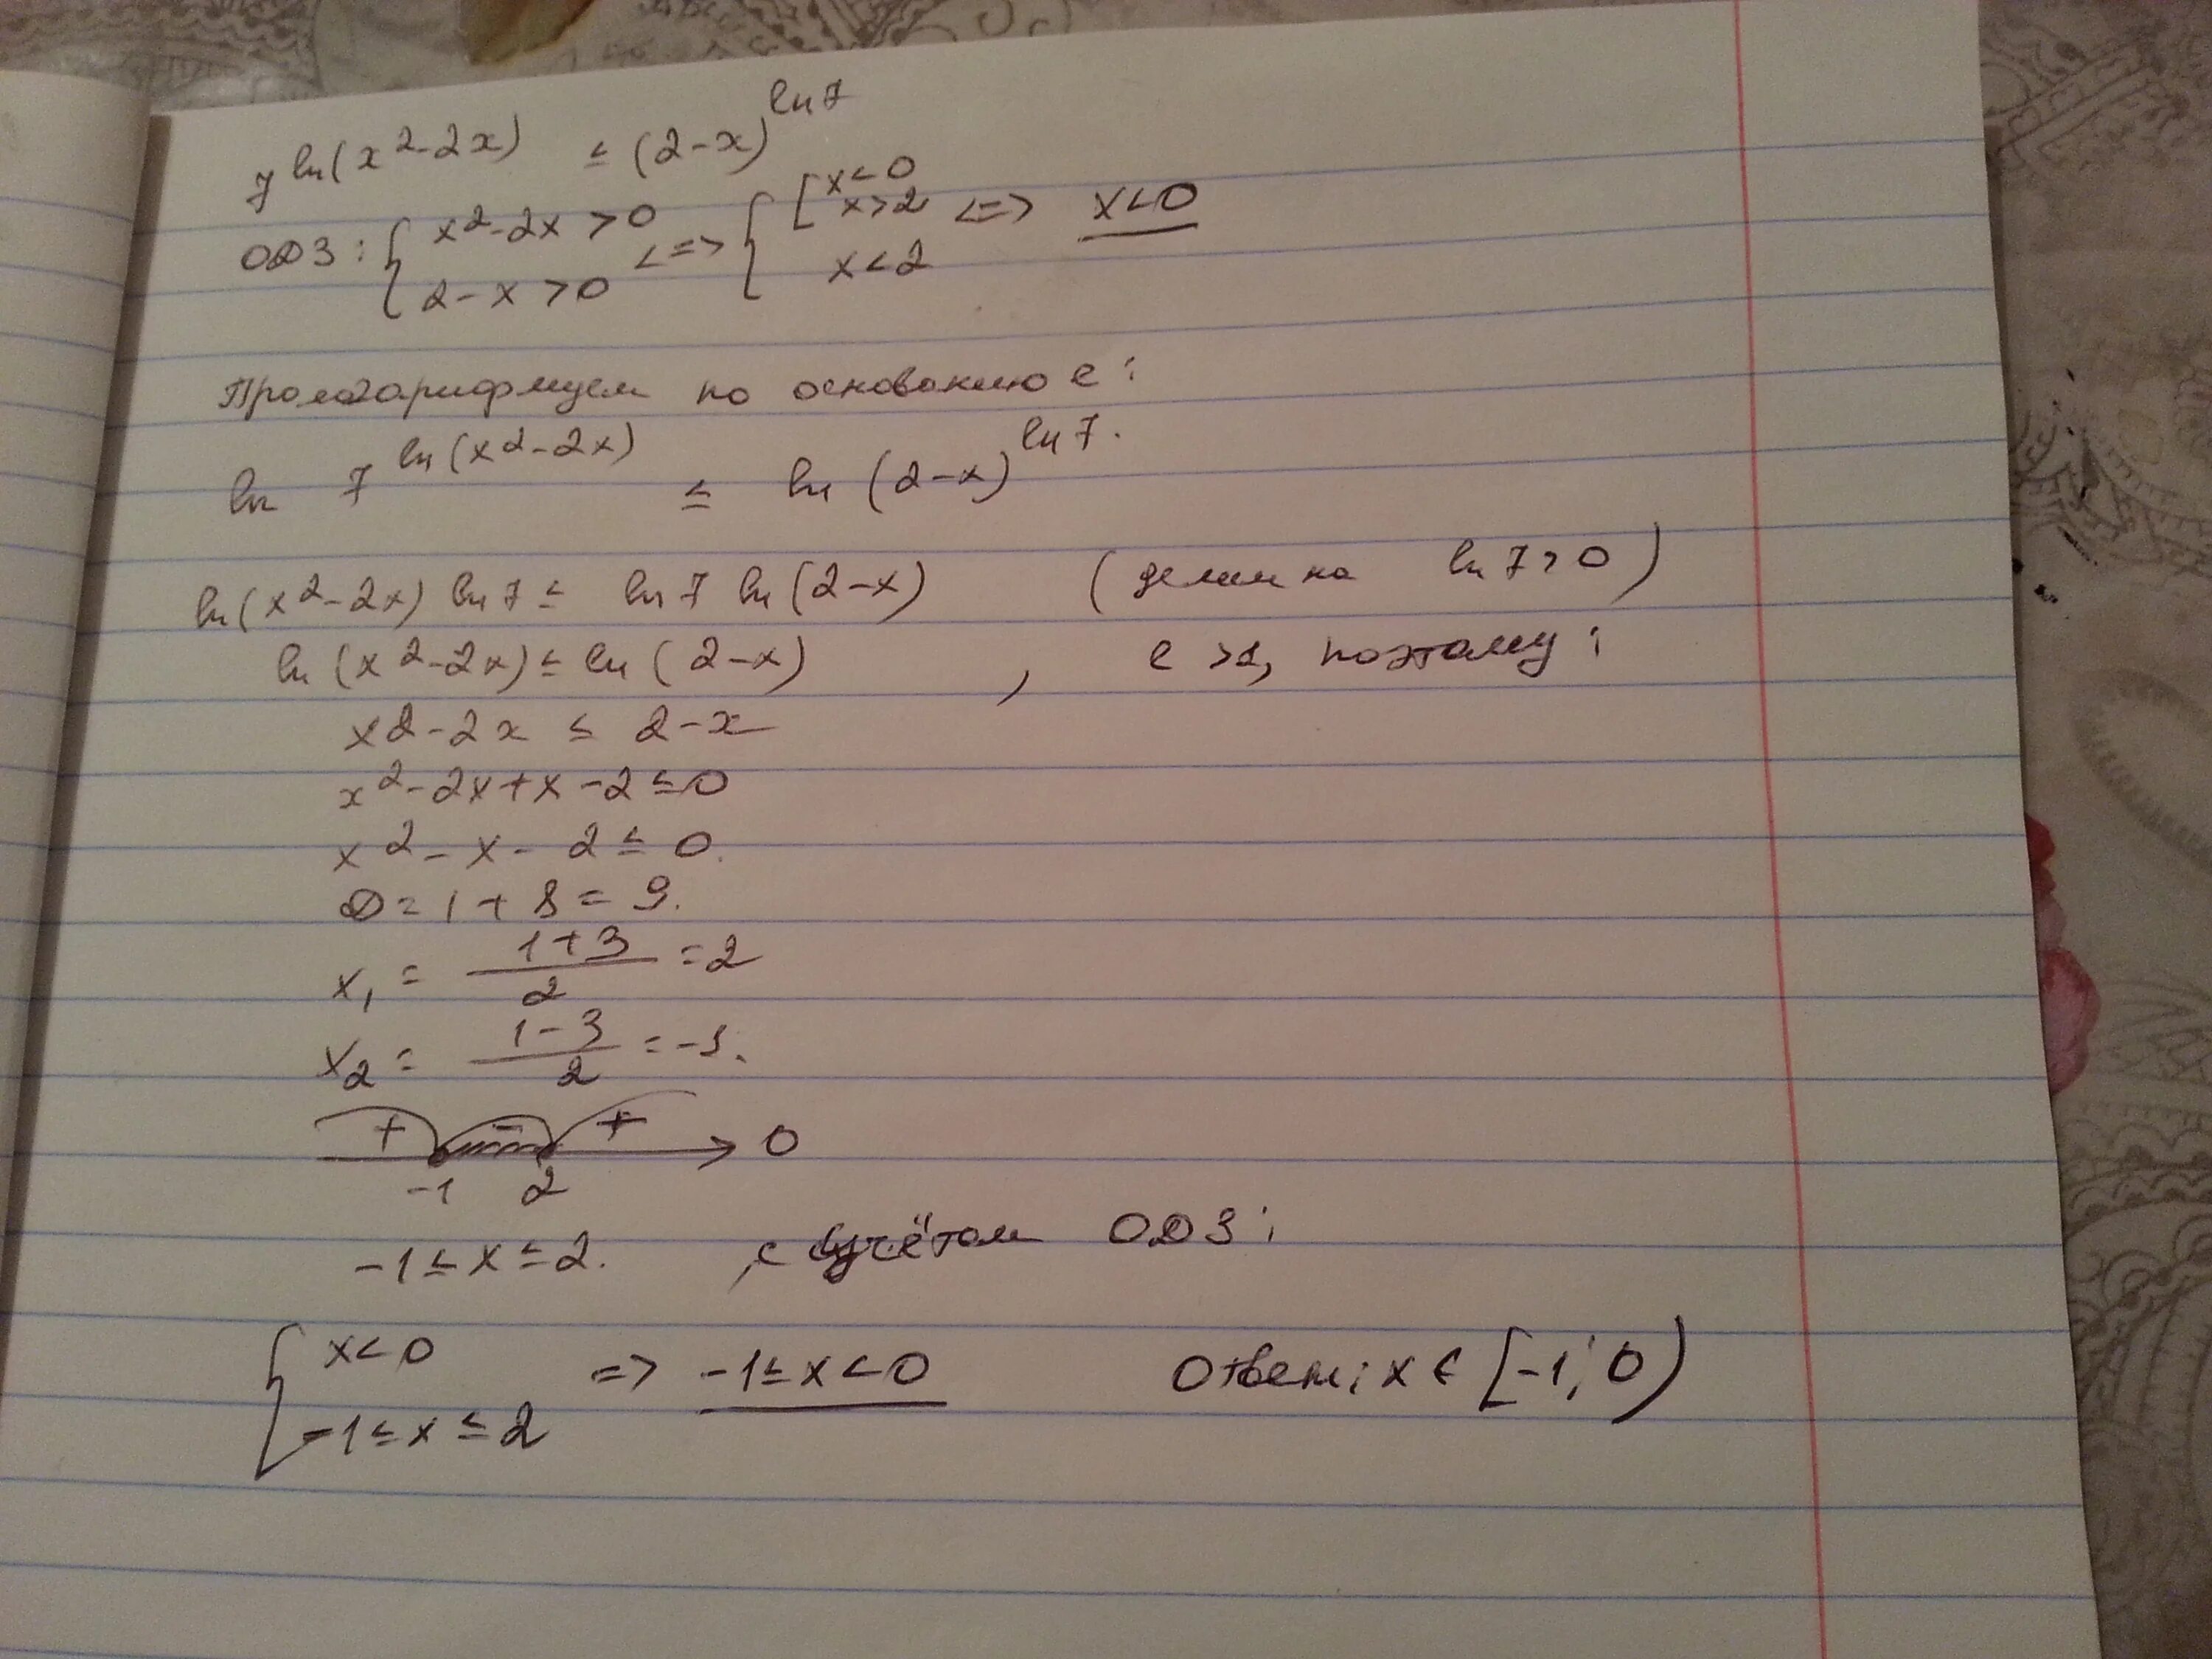 7^ln(x²-2x) ≤ (2-x)^ln7
ОДЗ: { x²-2x>0 2-x>0 <=> { [ x<0 x>2 x<2 <=> x<0
Прологарифмируем по основанию e:
ln 7^ln(x²-2x) ≤ ln (2-x)^ln7.
ln(x²-2x) ln7 ≤ ln7 ln(2-x) (делим на ln7>0)
ln(x²-2x) ≤ ln(2-x) , e>1, поэтому:
x²-2x ≤ 2-x
x²-2x+x-2≤0
x²-x-2≤0.
D=1+8=9.
x₁ = (1+3)/2 =2
x₂ = (1-3)/2 =-1.
+ - + 0
-1 2
-1≤x≤2. , с учётом ОДЗ:
{ x<0 -1≤x≤2 => -1≤x<0 Ответ: x∈[-1;0)